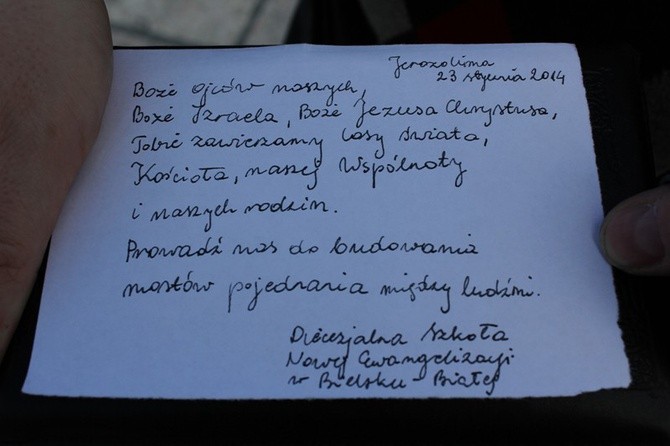 Jerozolima
23 stycznia 2014
Boże ojców naszych,
Boże Izraela, Boże Jezusa Chrystusa,
Tobie zawierzamy losy świata,
Kościoła, naszej Wspólnoty
i naszych rodzin.
Prowadź nas do budowania
mostów pojednania między ludźmi.
Diecezjalna Szkoła
Nowej Ewangelizacji
w Bielsku-Białej